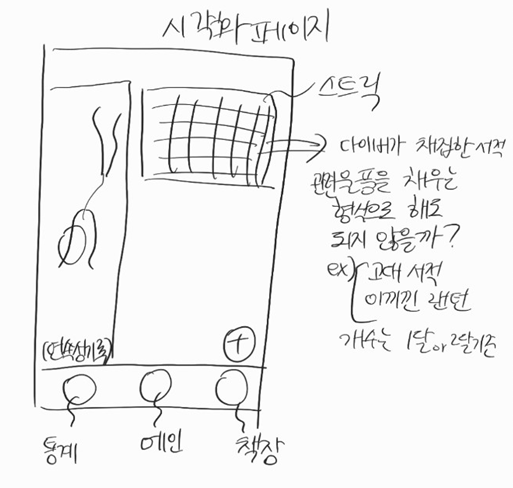 시각화 페이지
스트릭
다이버가 채집한 서적
관련 용품을 채우는
형식으로 해도
되지 않을까?
ex) 고대 서적
이끼낀 랜턴
개수는 1달 or 2달 기준
(연속성기록)
+
통계
메인
책장